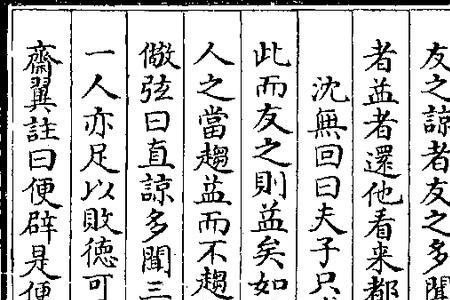 友之諒者友之多聞
者益者還他看来都
沈無回曰夫子只
此而友之則益矣如
人之當趨益而不趨
儆弦曰直諒多聞三
一人亦足以敗徳可
齋翼註曰便辟是便